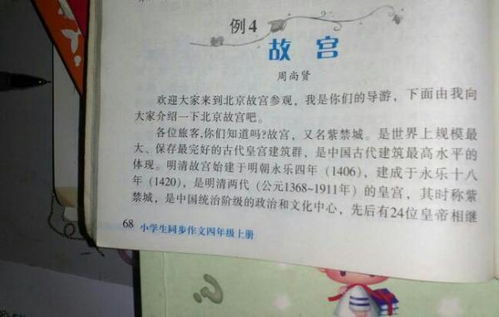 例4
故宫
周尚贤
欢迎大家来到北京故宫参观，我是你们的导游，下面由我向
大家介绍一下北京故宫吧。
各位旅客,你们知道吗?故宫，又名紫禁城。是世界上规模最
大、保存最完好的古代皇宫建筑群，是中国古代建筑最高水平的
体现。明清故宫始建于明朝永乐四年（1406），建成于永乐十八
年（1420），是明清两代（公元1368~1911年）的皇宫，其时称紫
禁城，是中国统治阶级的政治和文化中心，先后有24位皇帝相继
68 小学生同步作文四年级上册